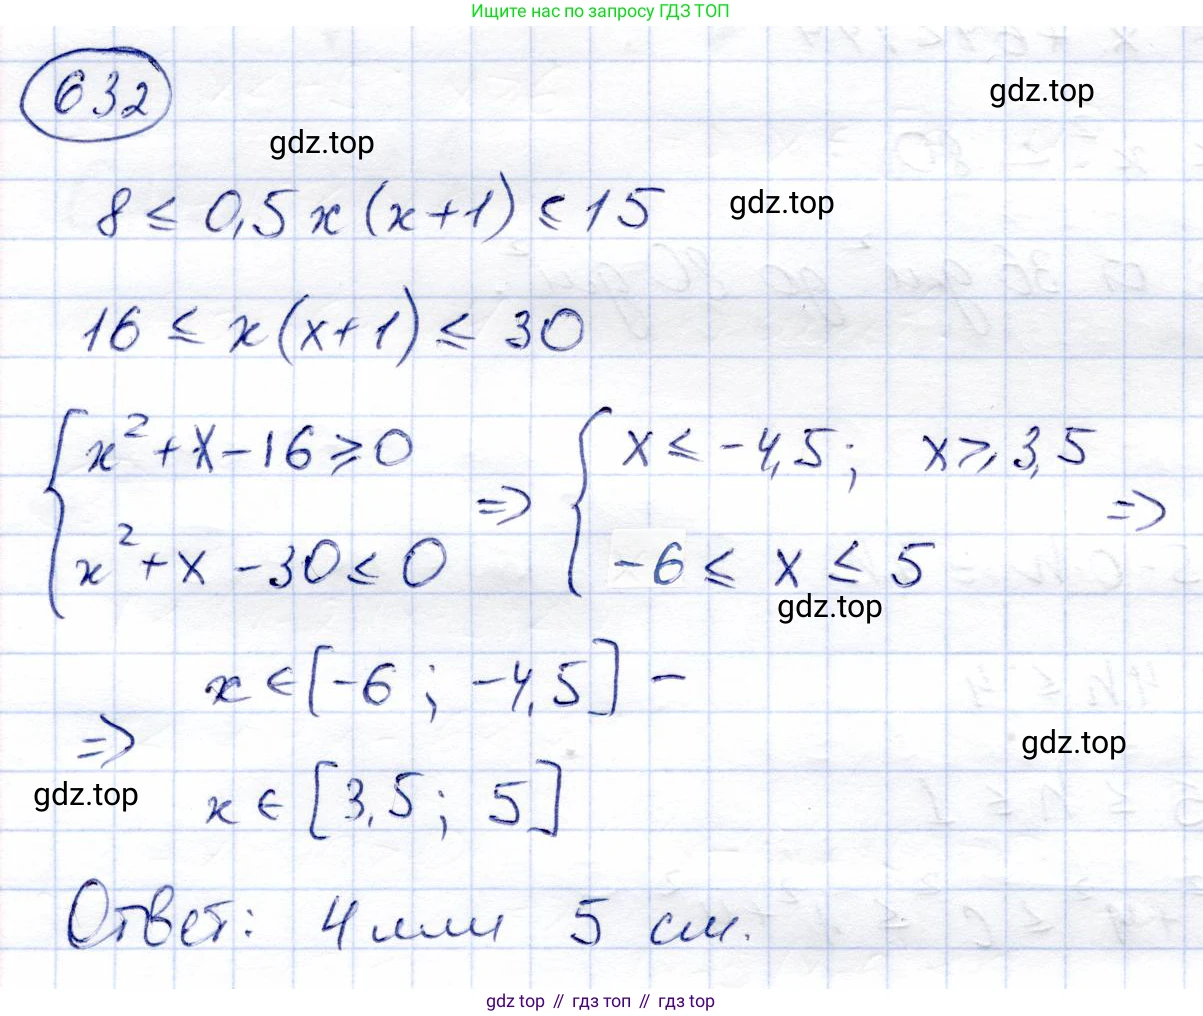 Ищите нас по запросу ГДЗ ТОП
632
gdz.top
gdz.top
8 ≤ 0,5 x (x+1) ≤ 15
gdz.top
16 ≤ x(x+1) ≤ 30
{ x² + x - 16 ≥ 0 ⇒ { x ≤ -4,5; x ≥ 3,5 ⇒
x² + x - 30 ≤ 0 -6 ≤ x ≤ 5
gdz.top
x ∈ [-6 ; -4,5] -
⇒
gdz.top
gdz.top
x ∈ [3,5 ; 5]
Ответ: 4 или 5 см.
gdz top // гдз топ // gdz top